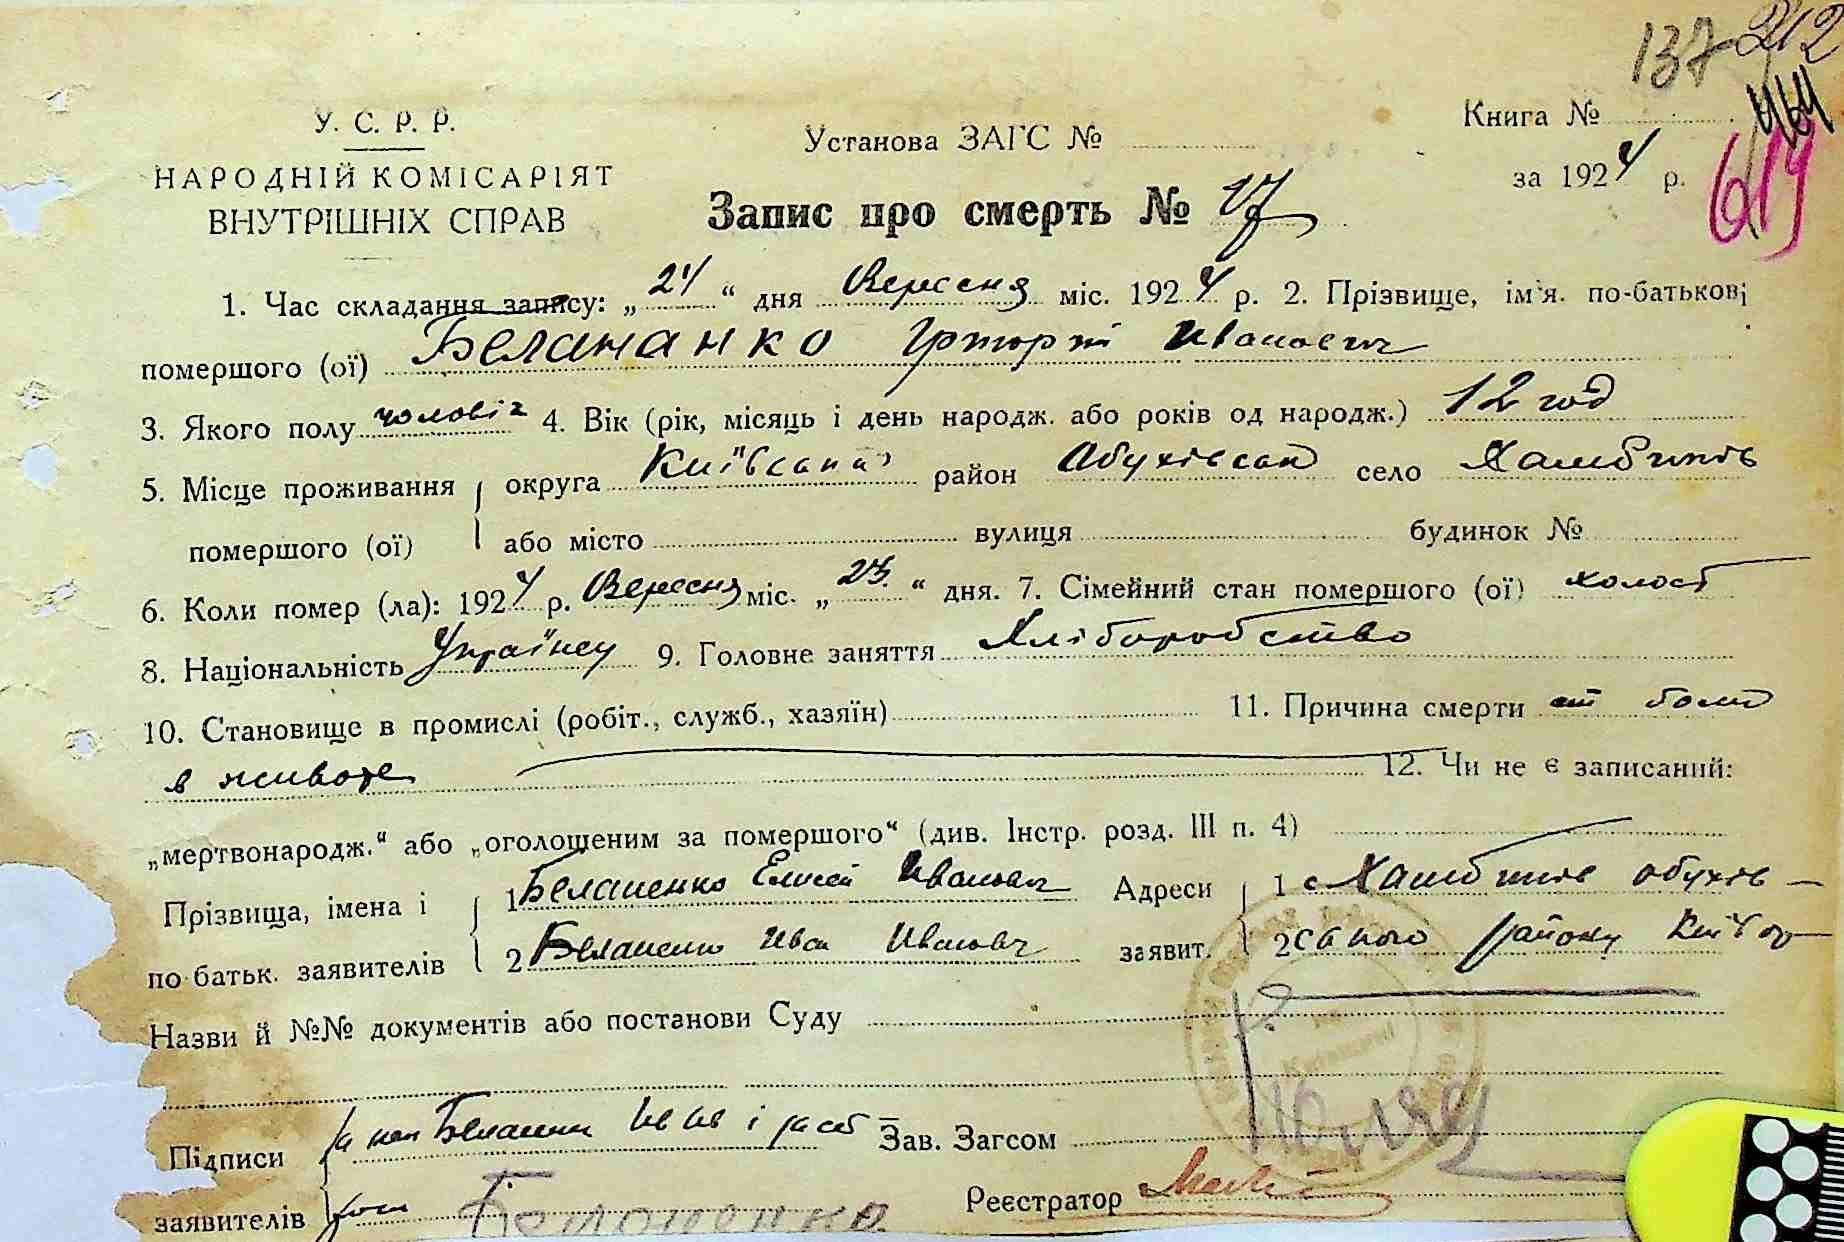 137 212
464
619
У. С. Р. Р.
НАРОДНІЙ КОМІСАРІЯТ
ВНУТРІШНІХ СПРАВ
Установа ЗАГС №
Книга №
за 1924 р.
Запис про смерть № 17
1. Час складання запису: „24“ дня Вересня міс. 1924 р. 2. Прізвище, ім'я. по-батькові
помершого (ої) Белананко Григорій Иванович
3. Якого полу чоловіч 4. Вік (рік, місяць і день народж. або років од народж.) 12 год
5. Місце проживання округа Київська район Обухівськ село
помершого (ої) або місто вулиця будинок №
6. Коли помер (ла): 1924 р. Вересня міс. „23.“ дня. 7. Сімейний стан помершого (ої) холост
8. Національність Українец 9. Головне заняття Хліборобство
10. Становище в промислі (робіт., служб., хазяїн) 11. Причина смерти от боли
в животе 12. Чи не є записаний:
„мертвонародж.“ або „оголошеним за помершого“ (див. Інстр. розд. III п. 4)
Прізвища, імена і 1 Белашенко Елисей Иванович Адреси 1 с. обухів-
по батьк. заявителів 2 Белашенко Иван Иванович заявит. 2 ского району
Назви й №№ документів або постанови Суду
Підписи Зав. Загсом
заявителів Белоненко Реєстратор